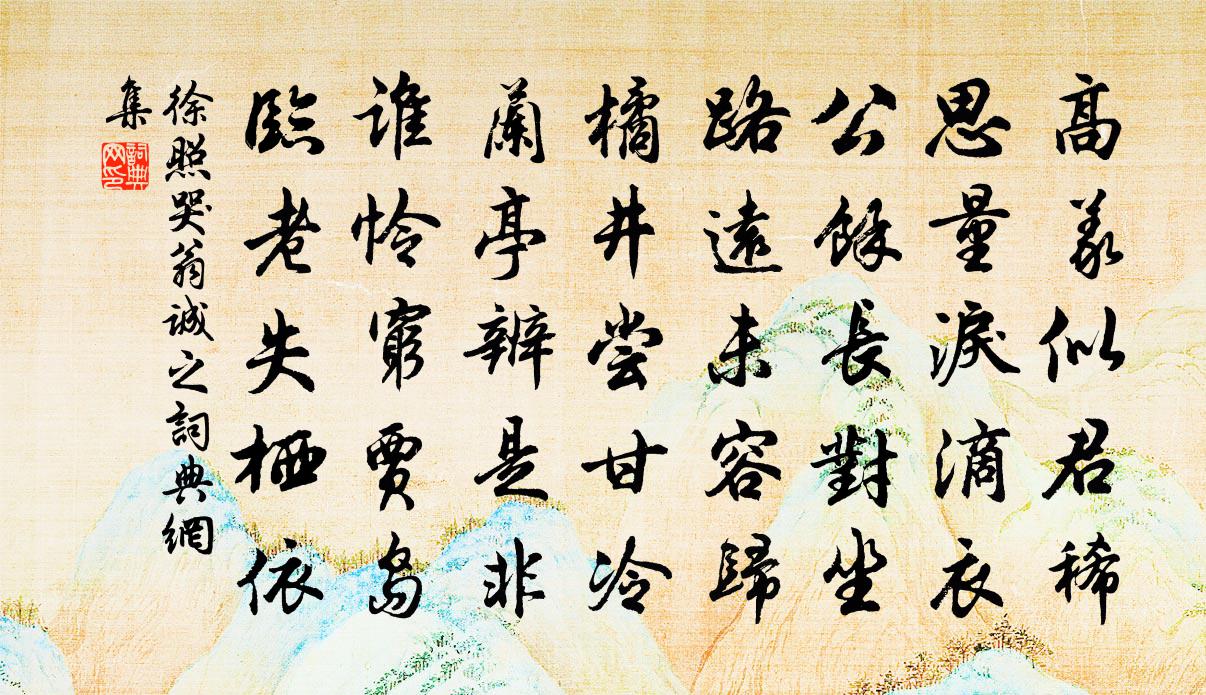 高義似君稀
思量淚滴衣
公餘長對坐
路遠未容歸
橘井嘗甘冷
蘭亭辨是非
誰憐窮賈島
臨老失栖依
徐照哭翁誠之詞典網
集
詞典網印